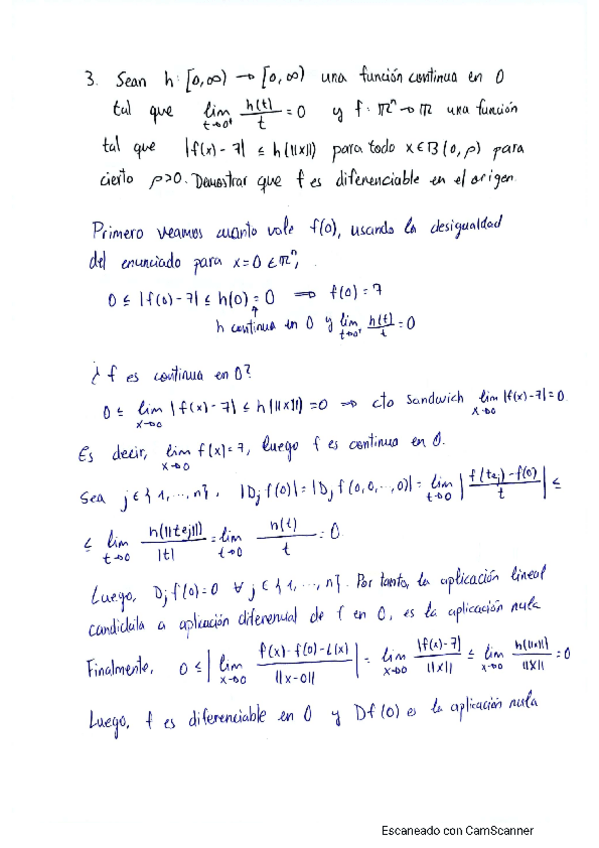 3. Sean h: [0,∞) → [0,∞) una función continua en 0
tal que lim t→0⁺ h(t)/t = 0 y f: ℝⁿ → ℝ una función
tal que |f(x) - 7| ≤ h(||x||) para todo x∈B(0,ρ) para
cierto ρ>0. Demostrar que f es diferenciable en el origen.
Primero veamos cuanto vale f(0), usando la desigualdad
del enunciado para x=0 ∈ ℝⁿ,
0 ≤ |f(0) - 7| ≤ h(0) = 0 ⟹ f(0) = 7
↑
h continua en 0 y lim t→0⁺ h(t)/t = 0
¿f es continua en 0?
0 ≤ lim x→0 |f(x) - 7| ≤ h(||x||) = 0 ⟹ cto sandwich lim x→0 |f(x) - 7| = 0
Es decir, lim x→0 f(x) = 7, luego f es continua en 0.
Sea j∈{1,...,n}, |Dj f(0)| = |Dj f(0,0,...,0)| = lim t→0 |f(tej) - f(0)/t| ≤
≤ lim t→0 h(||tej||)/|t| = lim t→0 h(t)/t = 0
Luego, Dj f(0) = 0 ∀ j ∈ {1,...,n}. Por tanto, la aplicación lineal
candidata a aplicación diferencial de f en 0, es la aplicación nula
Finalmente, 0 ≤ |lim x→0 f(x) - f(0) - L(x)/||x-0||| = lim x→0 |f(x) - 7|/||x|| ≤ lim x→0 h(||x||)/||x|| = 0
Luego, f es diferenciable en 0 y Df(0) es la aplicación nula
Escaneado con CamScanner